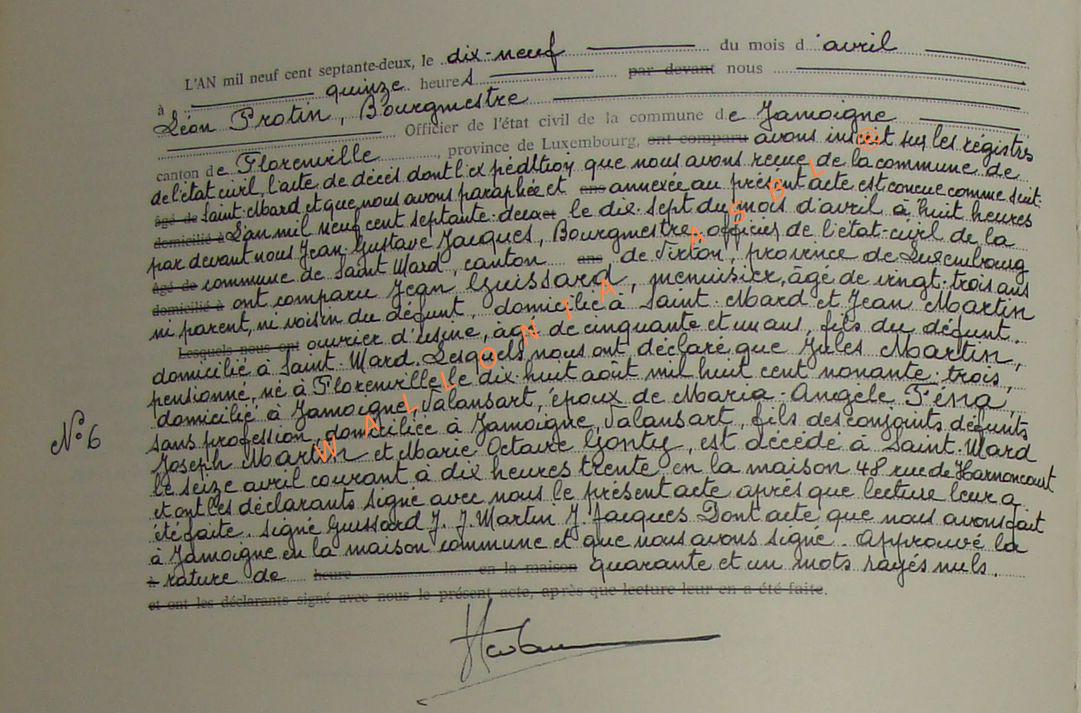 L'AN mil neuf cent septante-deux, le dix-neuf du mois d'avril
à quinze heures par devant nous
Léon Protin, Bourgmestre
Officier de l'état civil de la commune de Jamoigne
canton de Florenville, province de Luxembourg, ont comparu avons inscrit sur les régistres
de l'état civil, l'acte de décès dont l'expédition que nous avons reçue de la commune de
âgé de Saint-Mard et que nous avons paraphée et ans annexée au présent acte est conçue comme suit.
domicilié à L'an mil neuf cent septante-deux et le dix-sept du mois d'avril à huit heures
par devant nous Jean Gustave Jacques, Bourgmestre, officier de l'état-civil de la
âgé de commune de Saint Mard, canton ans de Virton, province de Luxembourg
domicilié à ont comparu Jean Guissard, menuisier, âgé de vingt-trois ans
ni parent, ni voisin du défunt, domicilié à Saint-Mard et Jean Martin
Lesquels nous ont ouvrier d'usine, âgé de cinquante et un ans, fils du défunt,
domicilié à Saint-Mard. Lesquels nous ont déclaré que Jules Martin,
pensionné, né à Florenville le dix-huit août mil huit cent nonante-trois,
domicilié à Jamoigne, Valansart, époux de Maria-Angèle
sans profession, domiciliée à Jamoigne, Valansart, fils des conjoints défunts
Nº 6
Joseph Martin et Marie Octavie Gonty, est décédé à Saint-Mard
le seize avril courant à dix heures trente en la maison 48 rue de Harnoncourt
et ont les déclarants signé avec nous le présent acte après que lecture leur a
été faite. signé Guissard J. J. Martin J. Jacques Dont acte que nous avons fait
à Jamoigne en la maison commune et que nous avons signé. approuvé la
à rature de heure en la maison quarante et un mots rayés nuls.
et ont les déclarants signé avec nous le présent acte, après que lecture leur en a été faite.
WALLONIA ASBL